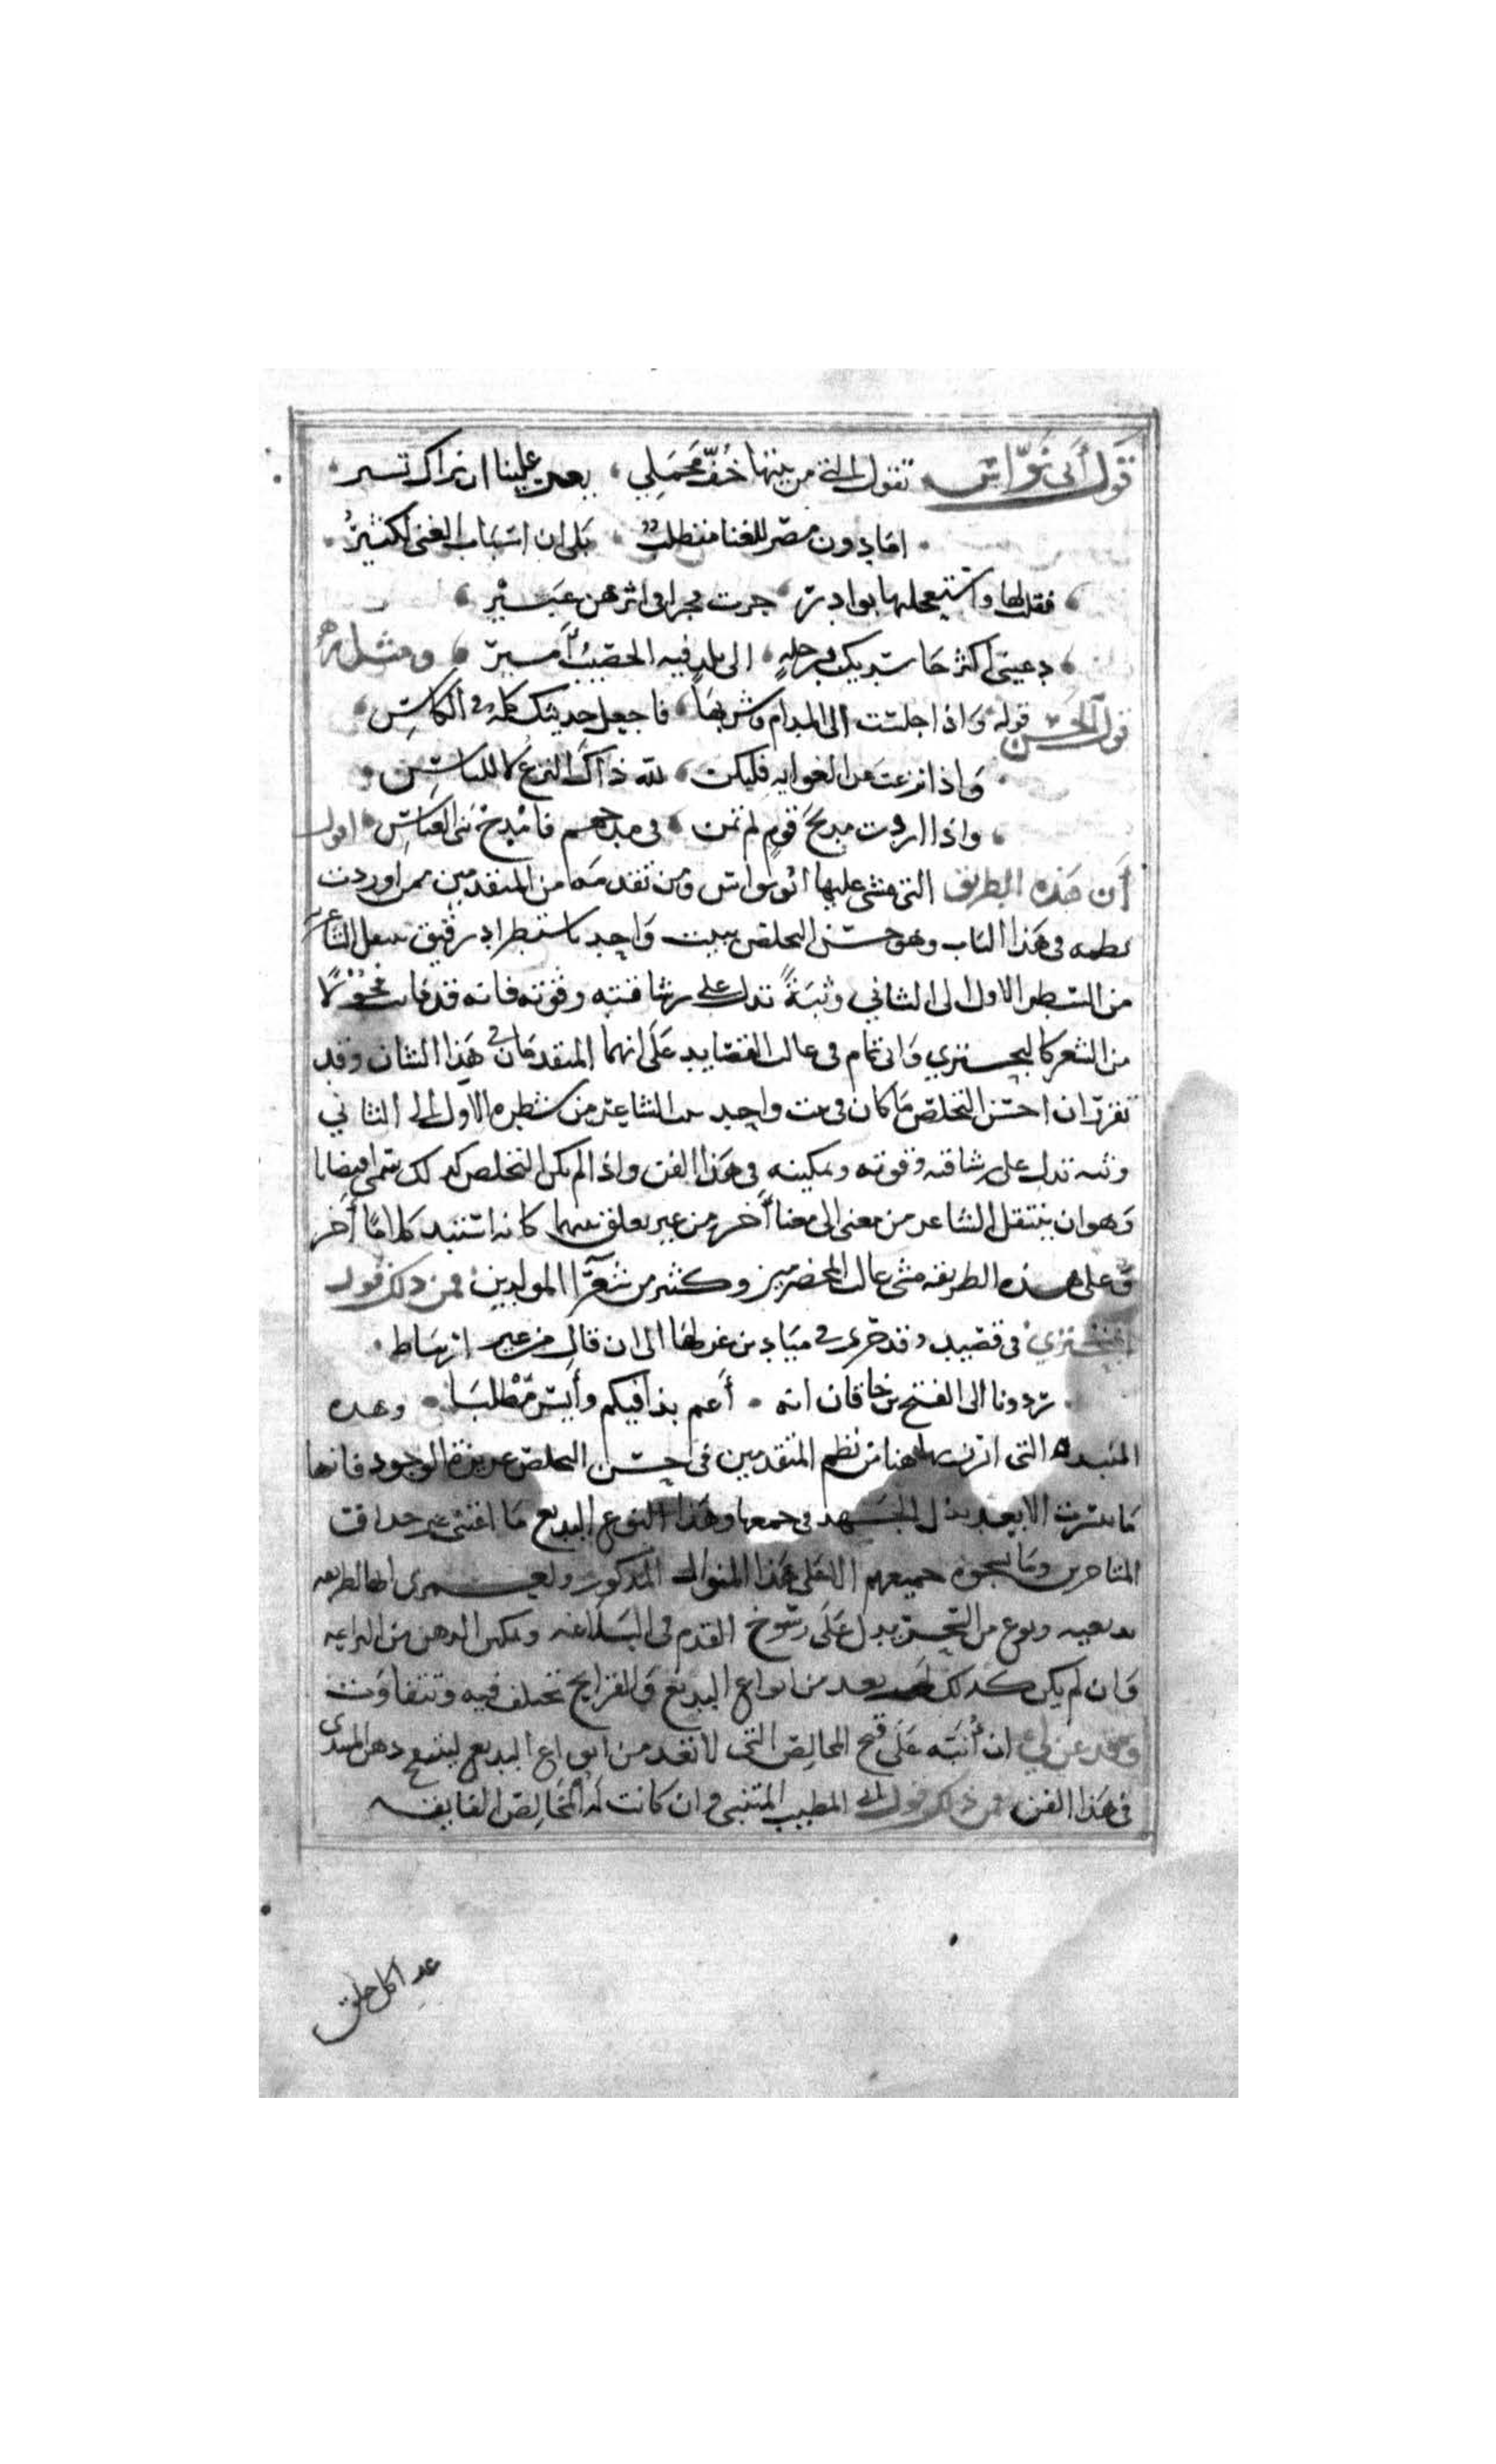 قول أبي نواس تقول التي من بيتها خف محملي بعيد علينا ان نراك تسير
اما دون مصر للغنا متطلب بلى ان اسباب الغنى لكثير
فقلت لها واستعجلتها بوادر جرت فجرا في اثرهن عبير
دعيني اكثر حاسديك برحلة الى بلد فيه الخصيب أمير ومثله
قول الحسن قوله واذا جلست الى المدام وشربها فاجعل حديثك كله في الكاس
واذا نزعت عن الغوايه فليكن لله ذاك النزع لا للناس
واذا اردت مديح قوم لم تمن في مدحهم فامدح بني العباس اقول
أن هذه الطريق التي مشى عليها ابو نواس ومن تقدمه من المتقدمين ممن اوردت
نظمه في هذا الباب وهو حسن التخلص ببيت واحد باستطراد رقيق ينتقل الشاعر
من الشطر الاول الى الثاني وثبة تدل على رشاقته وقوته فانه قد فات فحولا
من الشعر كالبحتري وابي تمام في غالب القصايد على انهما المتقدمان في هذا الشان وقد
تقرر ان احسن التخلص ما كان في بيت واحد يثب الشاعر من شطره الاول الى الثاني
وثبه تدل على رشاقته وقوته وتمكينه في هذا الفن واذا لم يكن التخلص كذلك سمي اقتضابا
وهو ان ينتقل الشاعر من معنى الى معنا أخر من غير تعلق بينهما كانه استبد كلاما أخر
وعلى هذه الطريقه مشى غالب المخضرمين وكثير من شعرا المولدين فمن ذلك قول
البحتري في قصيد وقد جرى في ميادين غزلها الى ان قال من غير ارتباط
تردونا الى الفتح بن خاقان انه أعم بذا فيكم وأيسر مطلبا وهذه
النبذه التي اثرت بها هنا من نظم المتقدمين في حسن التخلص عزيزة الوجود فانها
ما تيسرت الا بعد بذل الجهد في جمعها وهذا النوع البديع ما اعتنى غير حداقت
المتاخرين وما نسجوه جميعهم الا على هذا المنوال المذكور ولعمري انها لطريقه
بديعيه ونوع من السحر يدل على رسوخ القدم في البلاغه وتمكن الذهن من البراعه
وان لم يكن كذلك لم يعد من انواع البديع والقرايح تختلف فيه وتتفاوت
وقد عن لي ان أنبه على قبح المخالص التي لا تعد من انواع البديع ليتنبه ذهن المبتدى
في هذا الفن فمن ذلك قول ابي الطيب المتنبي وان كانت له المخالص الفايقه